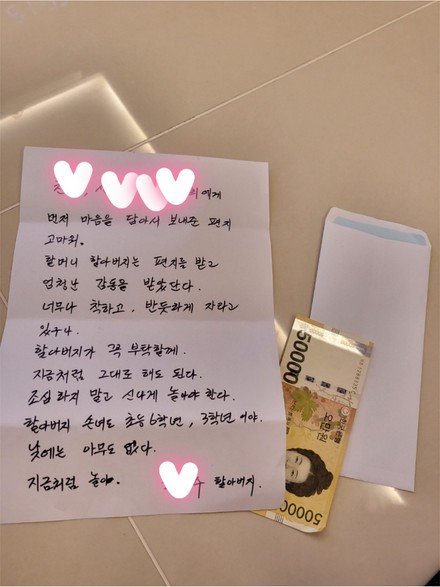 에게
먼저 마음을 담아서 보내준 편지
고마워.
할머니 할아버지는 편지를 받고
엄청난 감동을 받았단다.
너무나 착하고, 반듯하게 자라고
있구나.
할아버지가 꼭 부탁할께.
지금처럼 그대로 해도 된다.
조심 하지 말고 신나게 놀아야 한다.
할아버지 손녀도 초등 6학년, 3학년 이야.
낮에는 아무도 없다.
지금처럼 놀아.
할아버지.
50000
한국은행
오만원
50000